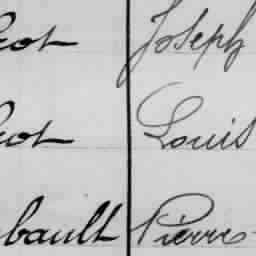 cot Joseph
cot Louis
bault Pierre